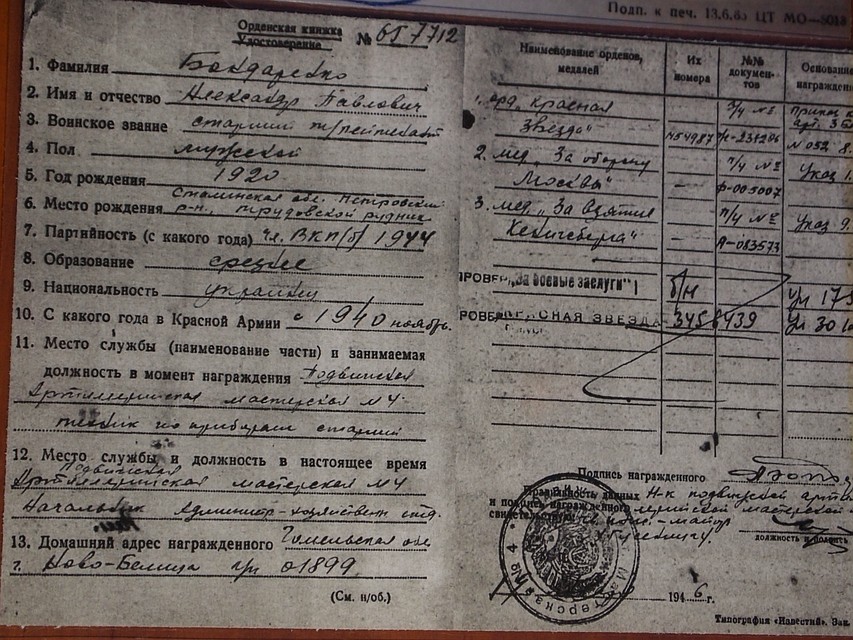 Подп. к печ. 13.6.85 ЦТ МО—
Орденская книжка
Удостоверение № 657712
1. Фамилия Бондаренко
2. Имя и отчество Александр Павлович
3. Воинское звание старший
4. Пол мужской
5. Год рождения 1920
6. Место рождения Сталинская обл. Петровский
р-н, Трудовской рудник
7. Партийность (с какого года) чл. ВКП/б/ 1944
8. Образование среднее
9. Национальность украинец
10. С какого года в Красной Армии с 1940 ноябрь.
11. Место службы (наименование части) и занимаемая
должность в момент награждения Подвижная
Артиллерийская мастерская №4
техник по приборам старший
12. Место службы и должность в настоящее время
Подвижная
Артиллерийская мастерская №4
Начальник Администр-хозяйствен отд.
13. Домашний адрес награжденного Гомельская обл
г. Ново-Белица п/я 01899
(См. н/об.)
Наименование орденов, медалей
Их номера
№№ документов
Основание
1. орд. "Красная
Звезда" 1154987
2. мед. "За оборону
Москвы" — п/у № Ф-005007 Указ
3. мед. "За взятие
Кенигсберга" — п/у № А-083573 Указ 9.
"За боевые заслуги" б/н
КРАСНАЯ ЗВЕЗДА 3458439
Подпись награжденного
Правильность данных Н-к подвижной
и подпись награжденного мастерской
майор
должность и подпись
Мастерская № 4
1946 г.
Типография «Известий». Зак.